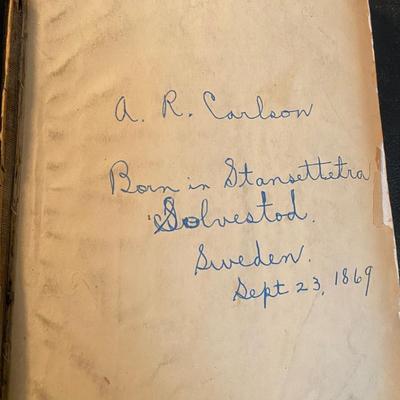 A. R. Carlson
Born in Stansettetra
Solvestod.
Sweden.
Sept 23, 1869